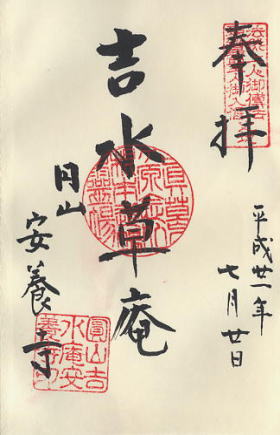 奉拝
平成廿一年
七月廿日
吉水草庵
円山
安養寺
圓山吉
水庵安
養寺印